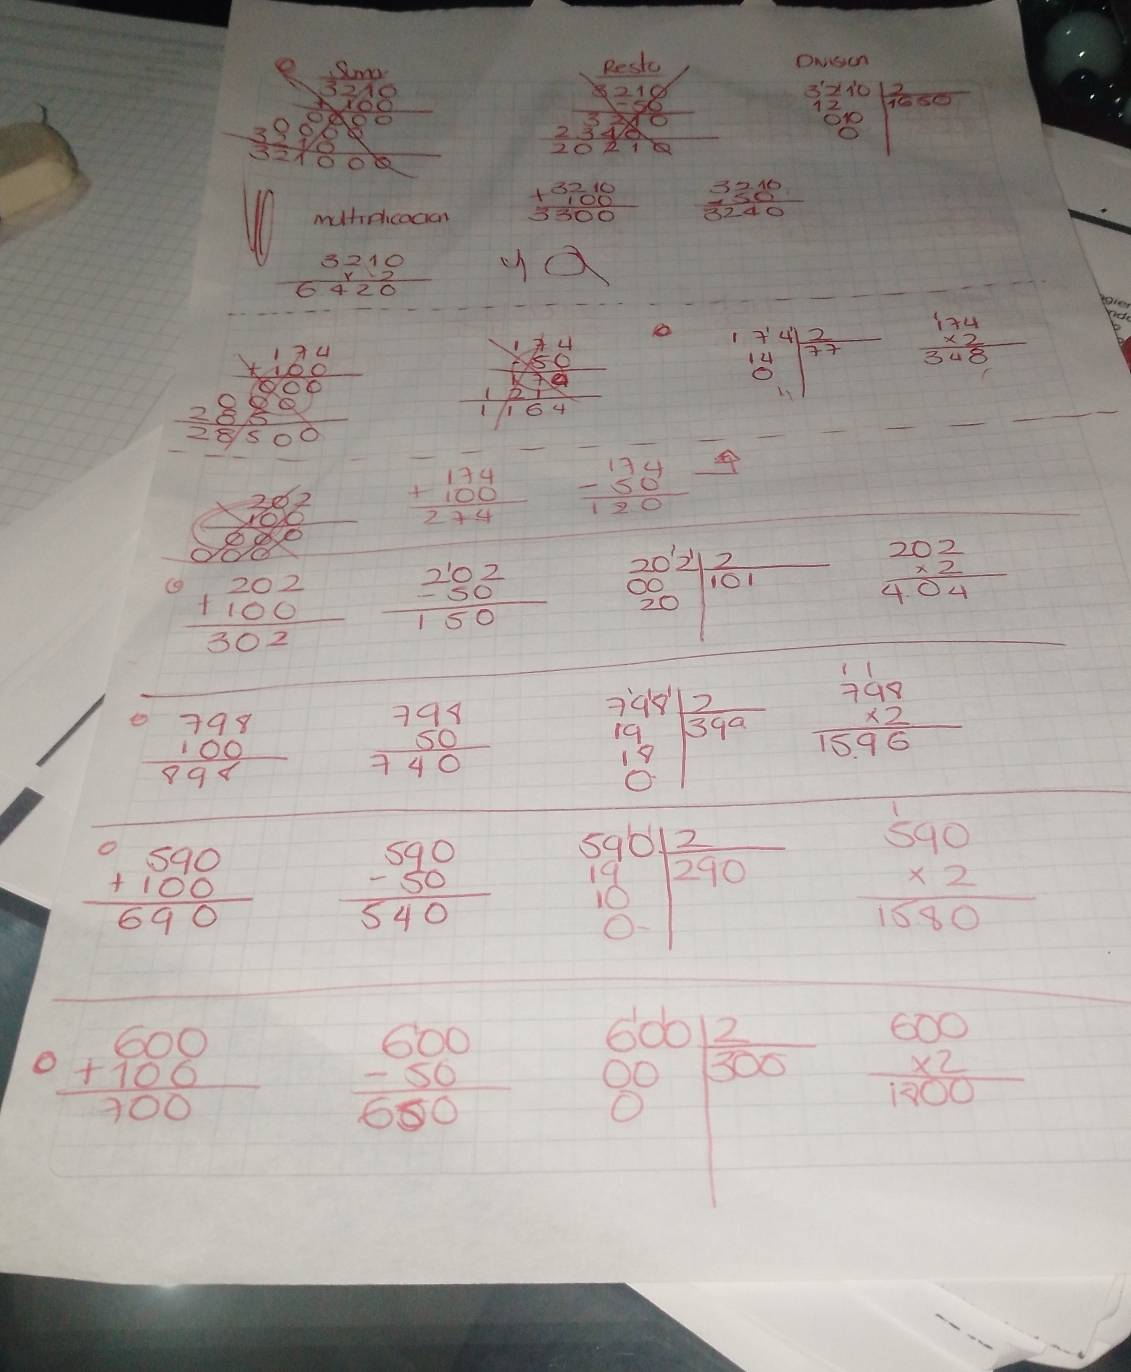 Suma Resta División
3210
+ 100
0000
0000
3210
321000
3210
- 50
3210
2340
20210
3210 2
12 1650
010
0
multiplicacion
+3210
100
3300
3210
- 30
3240
3210
x 2
6420
174
+ 100
000
000
28500
174
50
570
121
1164
174 2
14 77
0
174
x2
348
202
100
000
000
174
+ 100
274
174
- 50
120
202
+ 100
302
202
- 50
150
202 2
00 101
20
202
x 2
404
798
100
898
798
50
740
798 2
19 399
18
0
11
798
x2
1596
590
+ 100
690
590
- 50
540
590 2
19 290
10
0
1
590
x 2
1580
600
+ 100
700
600
- 50
650
600 2
00 300
0
600
x2
1200